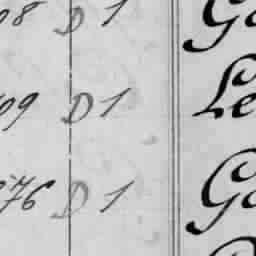 08 D 1 Ga
09 D 1 Le
76 D 1 Ga